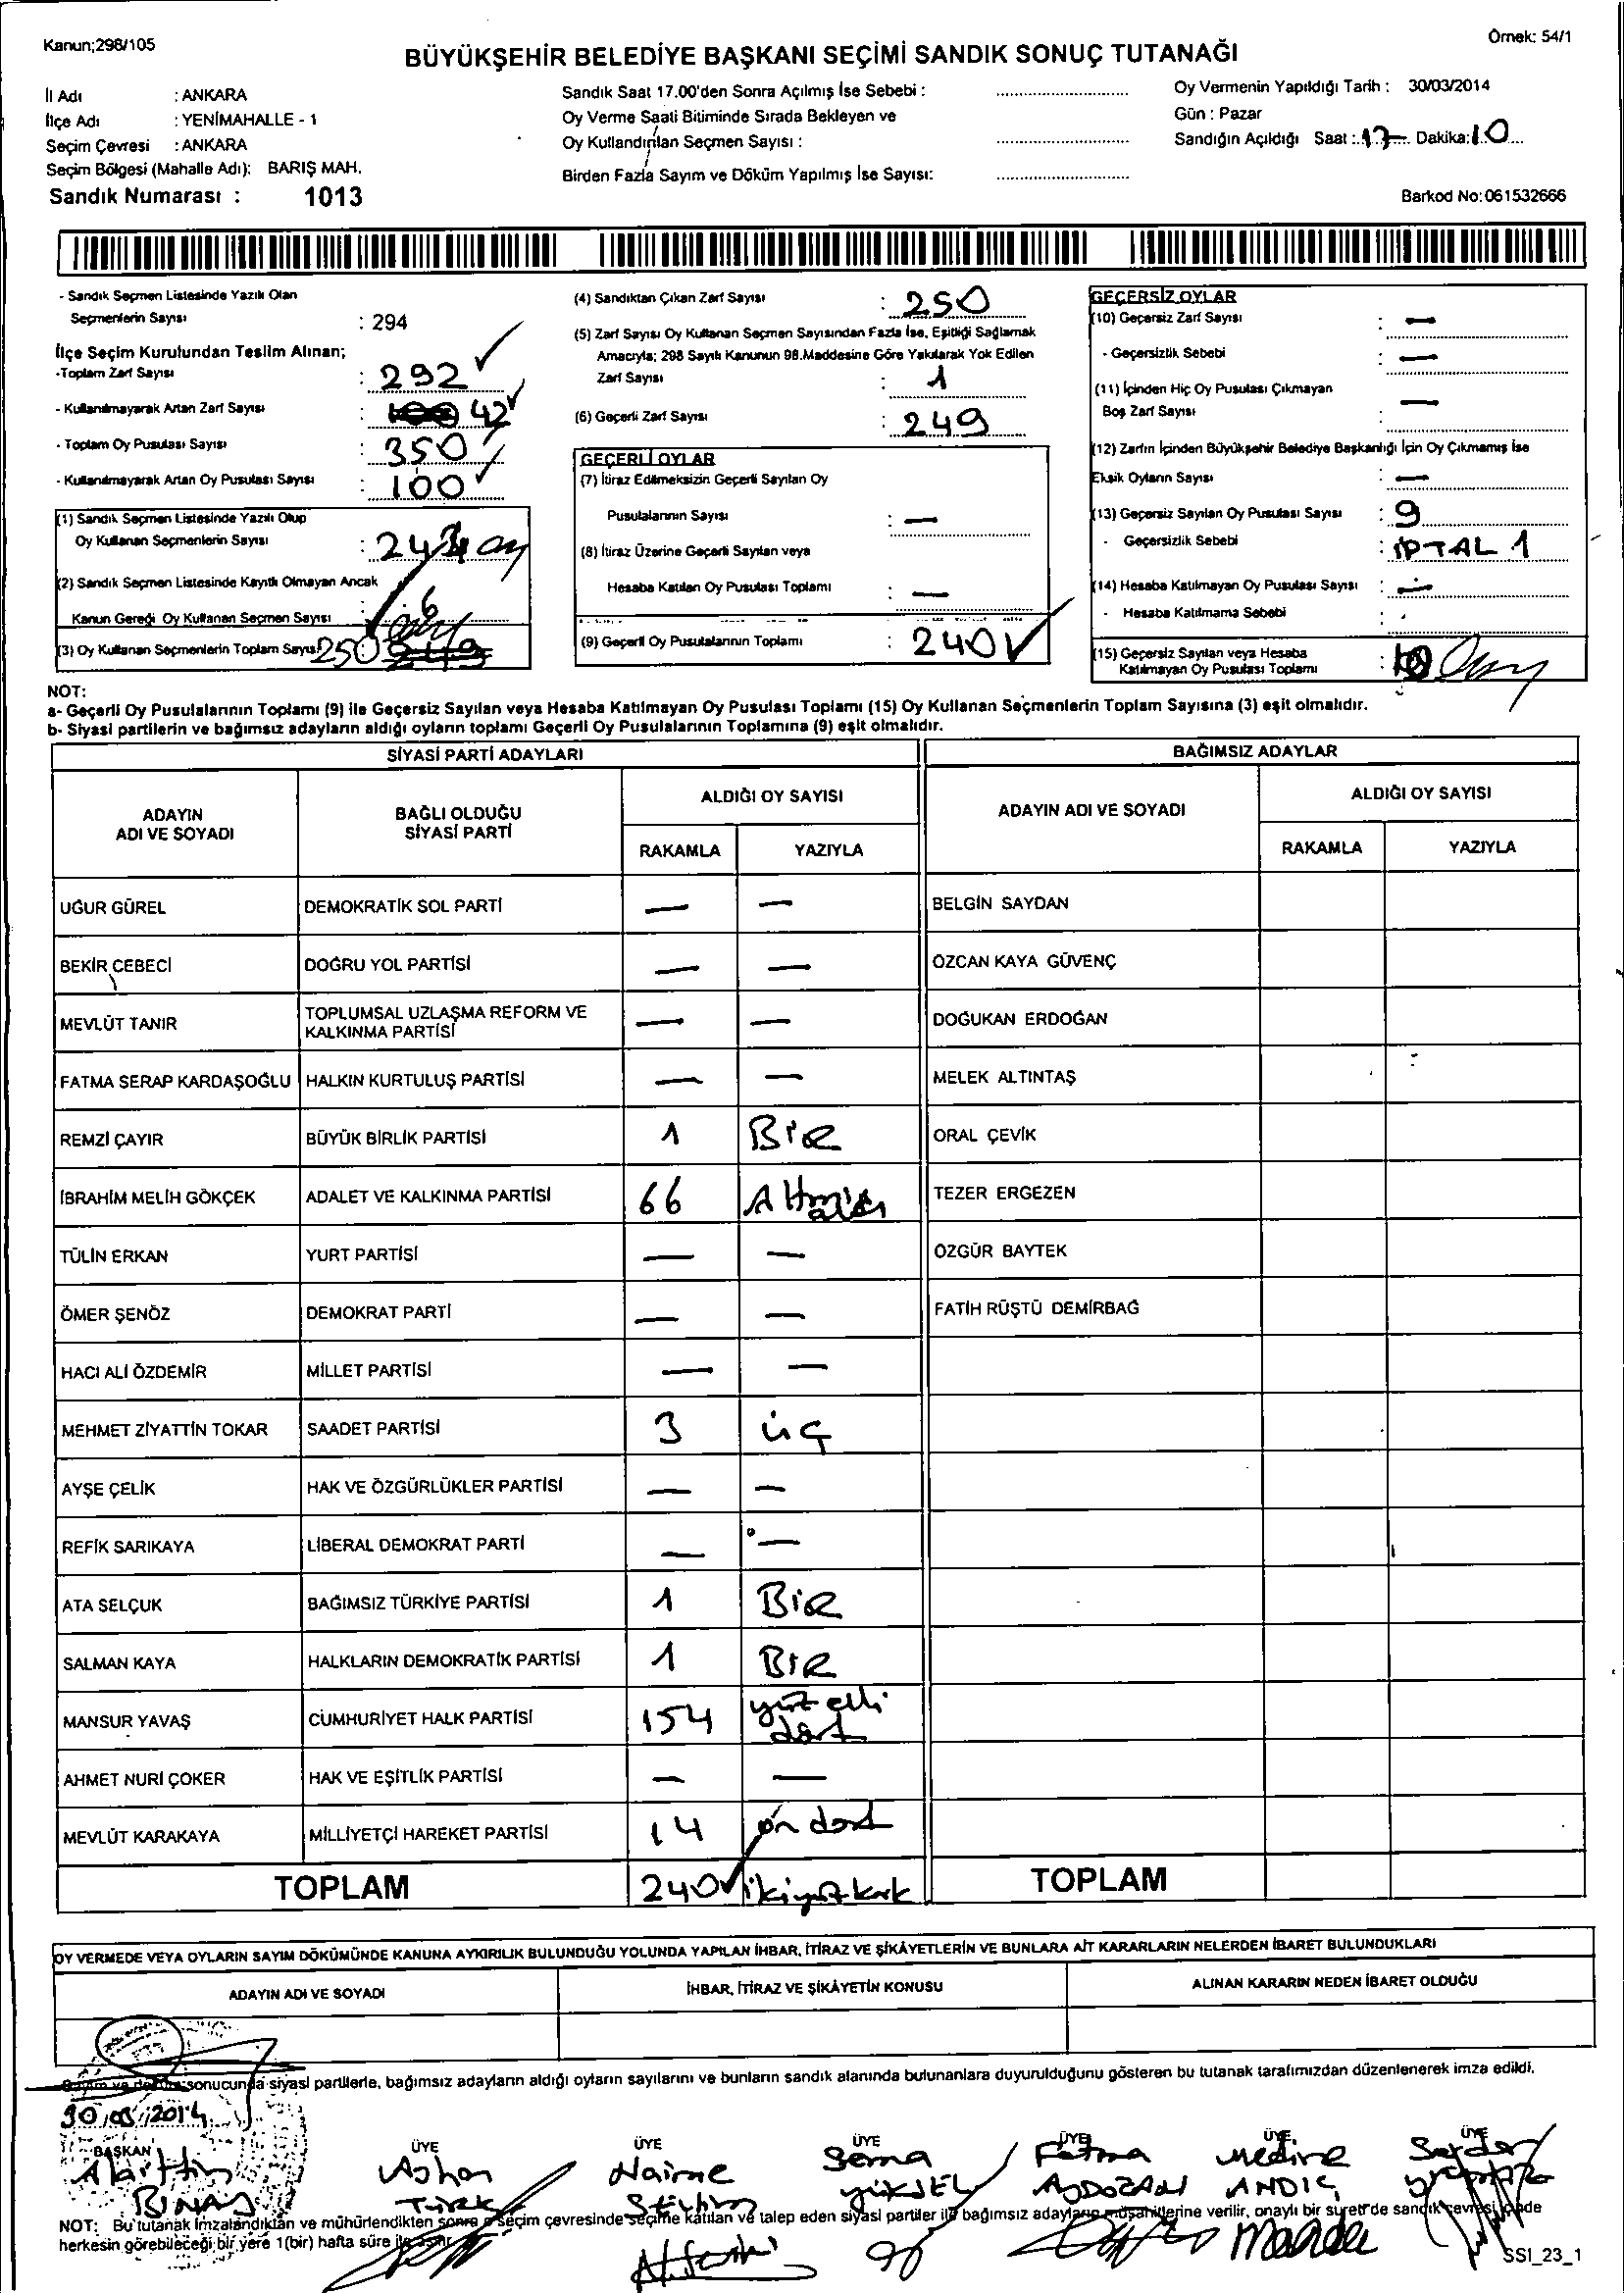 Kanun;298/105
Örnek: 54/1
BÜYÜKŞEHİR BELEDİYE BAŞKANI SEÇİMİ SANDIK SONUÇ TUTANAĞI
İl Adı : ANKARA
İlçe Adı : YENİMAHALLE - 1
Seçim Çevresi : ANKARA
Seçim Bölgesi (Mahalle Adı): BARIŞ MAH.
Sandık Numarası : 1013
Sandık Saat 17.00'den Sonra Açılmış İse Sebebi :
Oy Verme Saati Bitiminde Sırada Bekleyen ve
Oy Kullandırılan Seçmen Sayısı :
Birden Fazla Sayım ve Döküm Yapılmış İse Sayısı:
Oy Vermenin Yapıldığı Tarih : 30/03/2014
Gün : Pazar
Sandığın Açıldığı Saat : 17 Dakika: 10
Barkod No:061532666
- Sandık Seçmen Listesinde Yazılı Olan
Seçmenlerin Sayısı : 294
İlçe Seçim Kurulundan Teslim Alınan;
-Toplam Zarf Sayısı : 292
- Kullanılmayarak Artan Zarf Sayısı : 42
- Toplam Oy Pusulası Sayısı : 350
- Kullanılmayarak Artan Oy Pusulası Sayısı : 100
(1) Sandık Seçmen Listesinde Yazılı Olup
Oy Kullanan Seçmenlerin Sayısı :
(2) Sandık Seçmen Listesinde Kayıtlı Olmayan Ancak
Kanun Gereği Oy Kullanan Seçmen Sayısı : 6
(3) Oy Kullanan Seçmenlerin Toplam Sayısı 250 249
(4) Sandıktan Çıkan Zarf Sayısı : 250
(5) Zarf Sayısı Oy Kullanan Seçmen Sayısından Fazla İse, Eşitliği Sağlamak
Amacıyla; 298 Sayılı Kanunun 98.Maddesine Göre Yakılarak Yok Edilen
Zarf Sayısı : 1
(6) Geçerli Zarf Sayısı : 249
GEÇERLİ OYLAR
(7) İtiraz Edilmeksizin Geçerli Sayılan Oy
Pusulalarının Sayısı : —
(8) İtiraz Üzerine Geçerli Sayılan veya
Hesaba Katılan Oy Pusulası Toplamı : —
(9) Geçerli Oy Pusulalarının Toplamı : 240
GEÇERSİZ OYLAR
(10) Geçersiz Zarf Sayısı : —
- Geçersizlik Sebebi : —
(11) İçinden Hiç Oy Pusulası Çıkmayan
Boş Zarf Sayısı : —
(12) Zarfın İçinden Büyükşehir Belediye Başkanlığı İçin Oy Çıkmamış İse
Eksik Oyların Sayısı : —
(13) Geçersiz Sayılan Oy Pusulası Sayısı : 9
- Geçersizlik Sebebi : İPTAL 1
(14) Hesaba Katılmayan Oy Pusulası Sayısı : —
- Hesaba Katılmama Sebebi :
(15) Geçersiz Sayılan veya Hesaba
Katılmayan Oy Pusulası Toplamı :
NOT:
a- Geçerli Oy Pusulalarının Toplamı (9) ile Geçersiz Sayılan veya Hesaba Katılmayan Oy Pusulası Toplamı (15) Oy Kullanan Seçmenlerin Toplam Sayısına (3) eşit olmalıdır.
b- Siyasi partilerin ve bağımsız adayların aldığı oyların toplamı Geçerli Oy Pusulalarının Toplamına (9) eşit olmalıdır.
SİYASİ PARTİ ADAYLARI
BAĞIMSIZ ADAYLAR
ADAYIN ADI VE SOYADI
BAĞLI OLDUĞU SİYASİ PARTİ
ALDIĞI OY SAYISI
RAKAMLA YAZIYLA
ADAYIN ADI VE SOYADI
ALDIĞI OY SAYISI
RAKAMLA YAZIYLA
UĞUR GÜREL DEMOKRATİK SOL PARTİ — — BELGİN SAYDAN
BEKİR ÇEBECİ DOĞRU YOL PARTİSİ — — ÖZCAN KAYA GÜVENÇ
MEVLÜT TANIR TOPLUMSAL UZLAŞMA REFORM VE KALKINMA PARTİSİ — — DOĞUKAN ERDOĞAN
FATMA SERAP KARDAŞOĞLU HALKIN KURTULUŞ PARTİSİ — — MELEK ALTINTAŞ
REMZİ ÇAYIR BÜYÜK BİRLİK PARTİSİ 1 BİR ORAL ÇEVİK
İBRAHİM MELİH GÖKÇEK ADALET VE KALKINMA PARTİSİ 66 Altmış altı TEZER ERGEZEN
TÜLİN ERKAN YURT PARTİSİ — — ÖZGÜR BAYTEK
ÖMER ŞENÖZ DEMOKRAT PARTİ — — FATİH RÜŞTÜ DEMİRBAĞ
HACI ALİ ÖZDEMİR MİLLET PARTİSİ — —
MEHMET ZİYATTİN TOKAR SAADET PARTİSİ 3 üç
AYŞE ÇELİK HAK VE ÖZGÜRLÜKLER PARTİSİ — —
REFİK SARIKAYA LİBERAL DEMOKRAT PARTİ — —
ATA SELÇUK BAĞIMSIZ TÜRKİYE PARTİSİ 1 BİR
SALMAN KAYA HALKLARIN DEMOKRATİK PARTİSİ 1 BİR
MANSUR YAVAŞ CUMHURİYET HALK PARTİSİ 154 yüz elli dört
AHMET NURİ ÇOKER HAK VE EŞİTLİK PARTİSİ — —
MEVLÜT KARAKAYA MİLLİYETÇİ HAREKET PARTİSİ 14 on dört
TOPLAM 240 ikiyüzkırk TOPLAM
OY VERMEDE VEYA OYLARIN SAYIM DÖKÜMÜNDE KANUNA AYKIRILIK BULUNDUĞU YOLUNDA YAPILAN İHBAR, İTİRAZ VE ŞİKÂYETLERİN VE BUNLARA AİT KARARLARIN NELERDEN İBARET BULUNDUKLARI
ADAYIN ADI VE SOYADI İHBAR, İTİRAZ VE ŞİKÂYETİN KONUSU ALINAN KARARIN NEDEN İBARET OLDUĞU
Sayım ve döküm sonucunda siyasi partilerle, bağımsız adayların aldığı oyların sayılarını ve bunların sandık alanında bulunanlara duyurulduğunu gösteren bu tutanak tarafımızdan düzenlenerek imza edildi.
30/03/2014
BAŞKAN ÜYE ÜYE ÜYE ÜYE ÜYE ÜYE
Naime Sema Fatma Medine Serdar
Türk YÜKSEL AYDOĞAN ANDIÇ
NOT: Bu tutanak imzalandıktan ve mühürlendikten sonra o seçim çevresinde seçime katılan ve talep eden siyasi partiler ile bağımsız adayların müşahitlerine verilir, onaylı bir suret de sandık çevresi içinde
herkesin görebileceği bir yere 1(bir) hafta süre ile asılır.
SSI_23_1